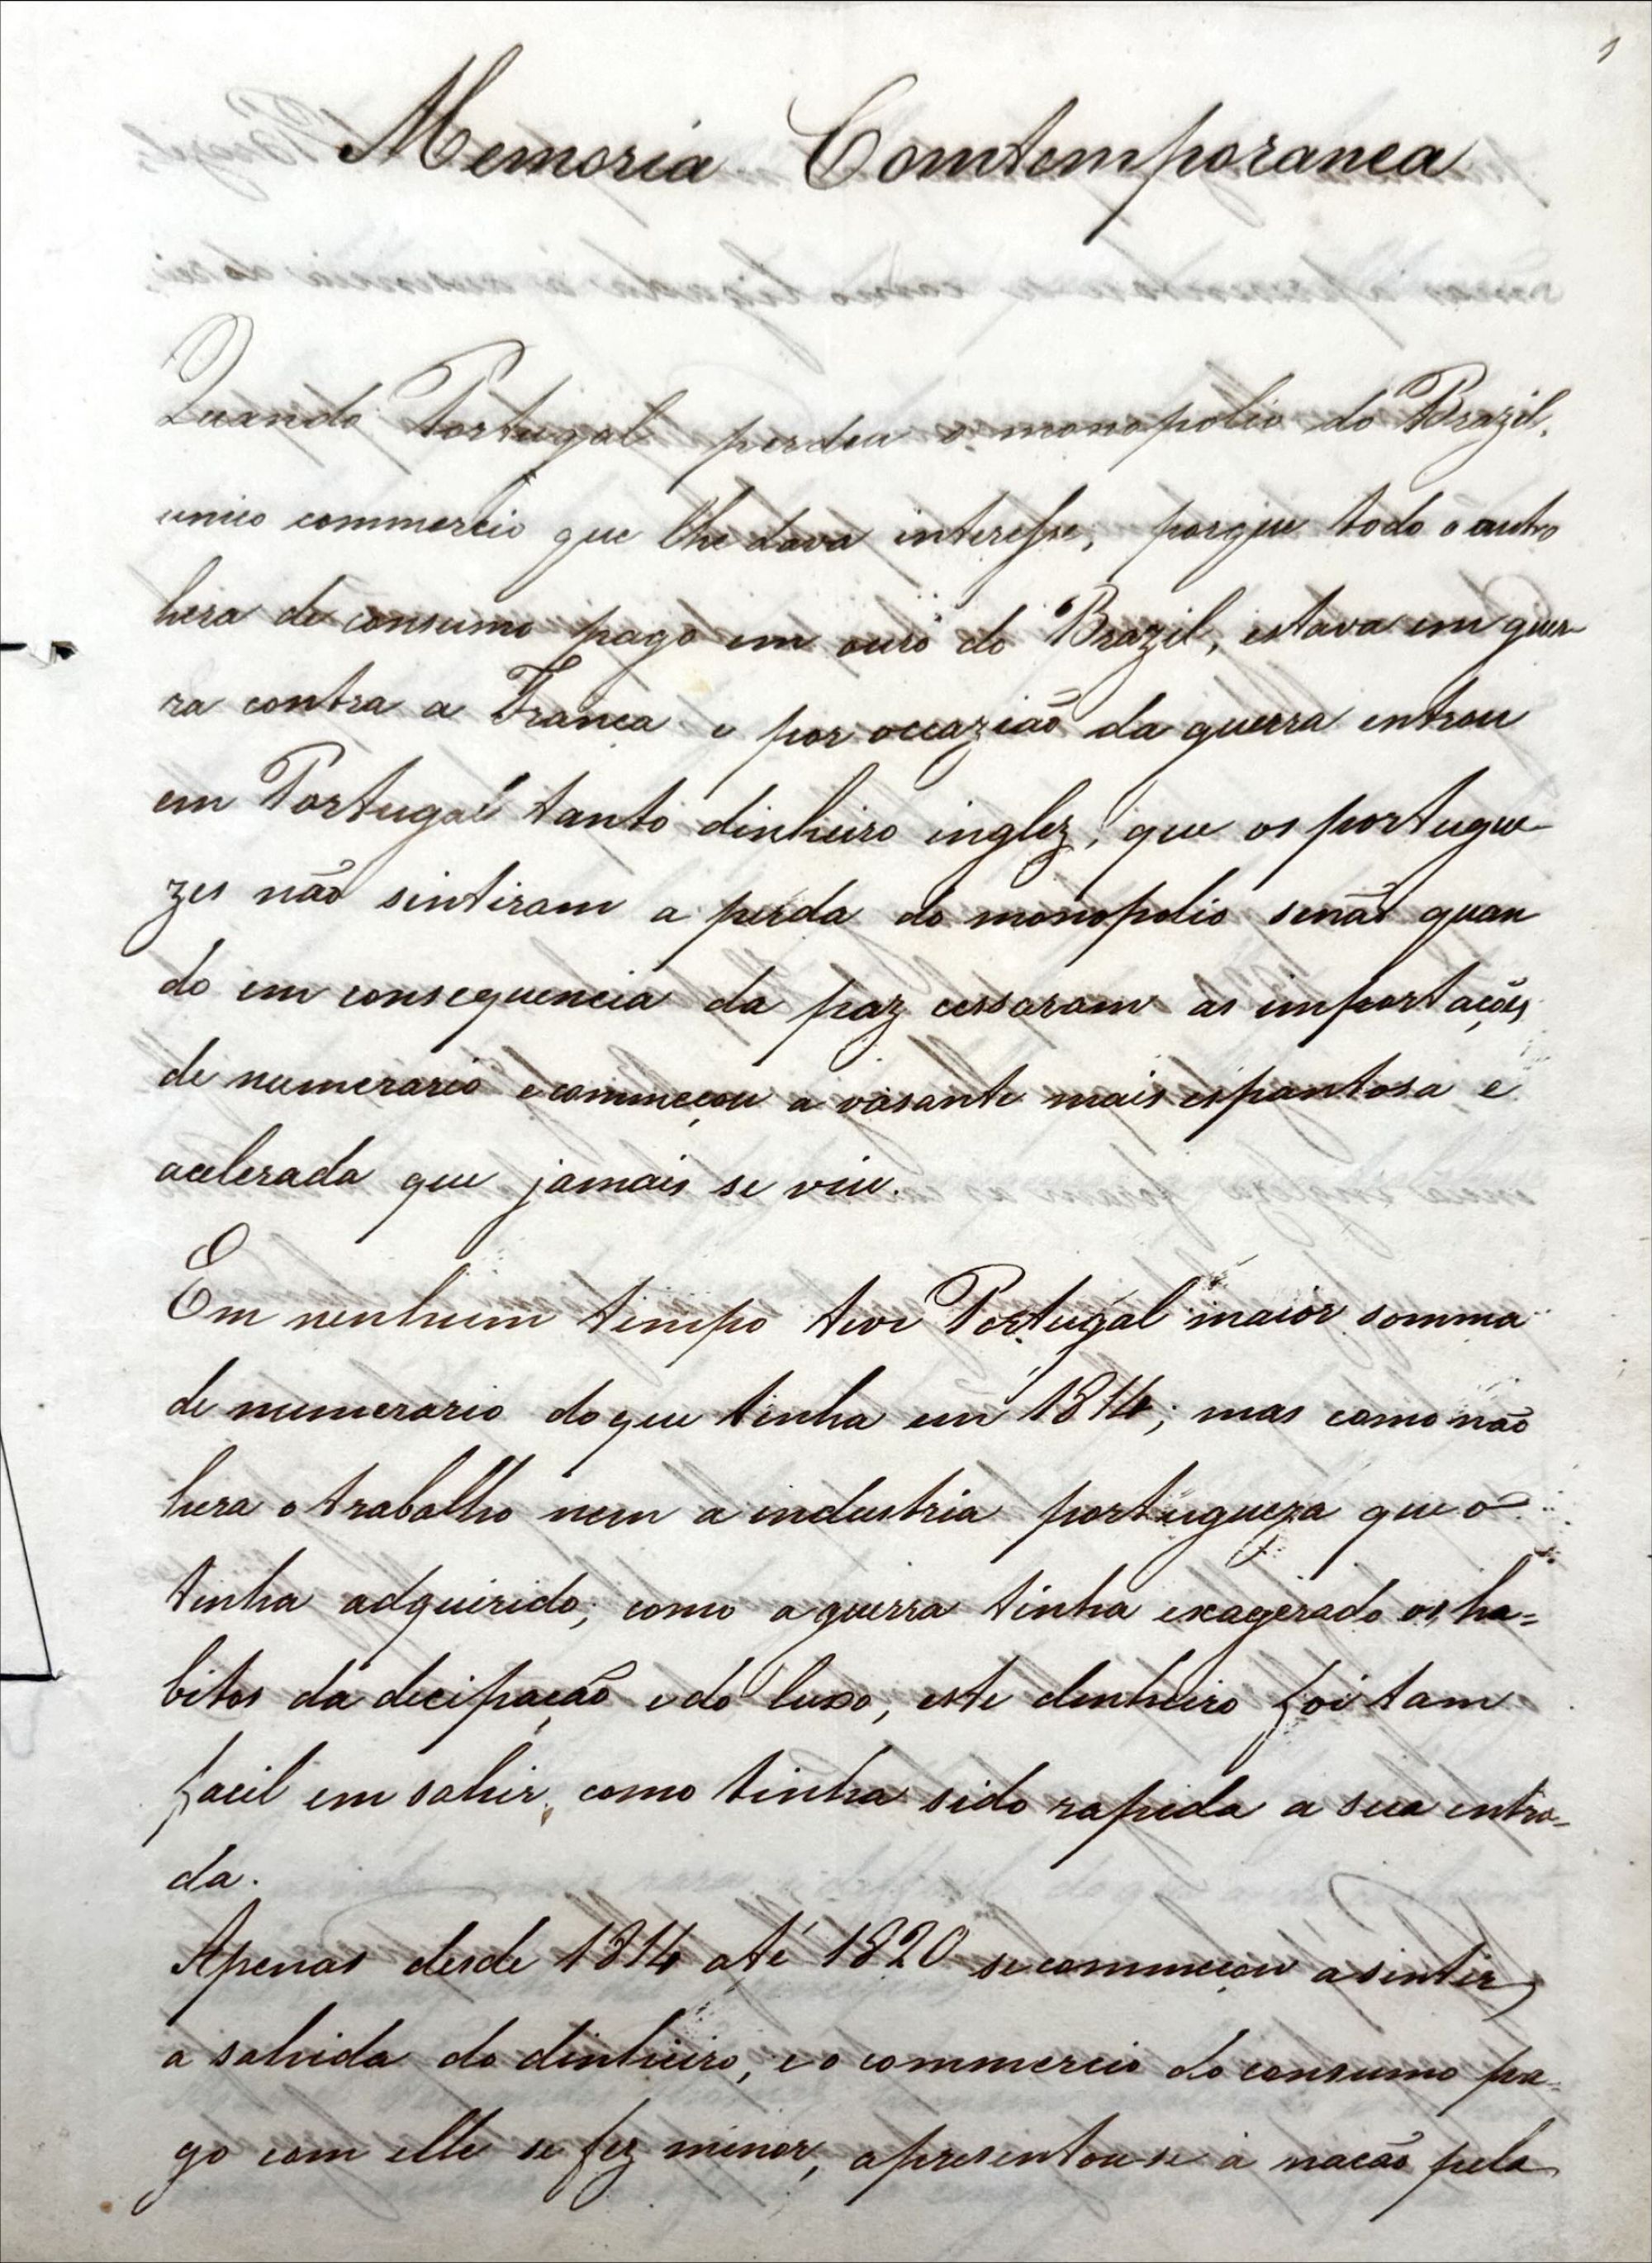 1
Memoria Comtemporanea
Quando Portugal perdeu o monopolio do Brazil,
unico commercio que lhe dava interesse, porque todo o outro
hera de consumo pago em ouro do Brazil, estava em guer-
ra contra a França e por occazião da guerra entrou
em Portugal tanto dinheiro inglez, que os portugue-
zes não sintiram a perda do monopolio senão quan
do em consequencia da paz cessaram as importações
de numerario e commeçou a vasante mais espantosa e
acelerada que jamais se viu.
Em nenhum tempo teve Portugal maior somma
de numerario do que tinha em 1814; mas como não
hera o trabalho nem a industria portugueza que o
tinha adquirido; como a guerra tinha exagerado os ha=
bitos da decipação e do luxo, este dinheiro foi tam
facil em sahir, como tinha sido rapida a sua entra=
da.
Apenas desde 1814 até 1820 se commeçou a sintir
a sahida do dinheiro, e o commercio do consumo pa=
go com elle se fez minor, apresentou-se á nação pela